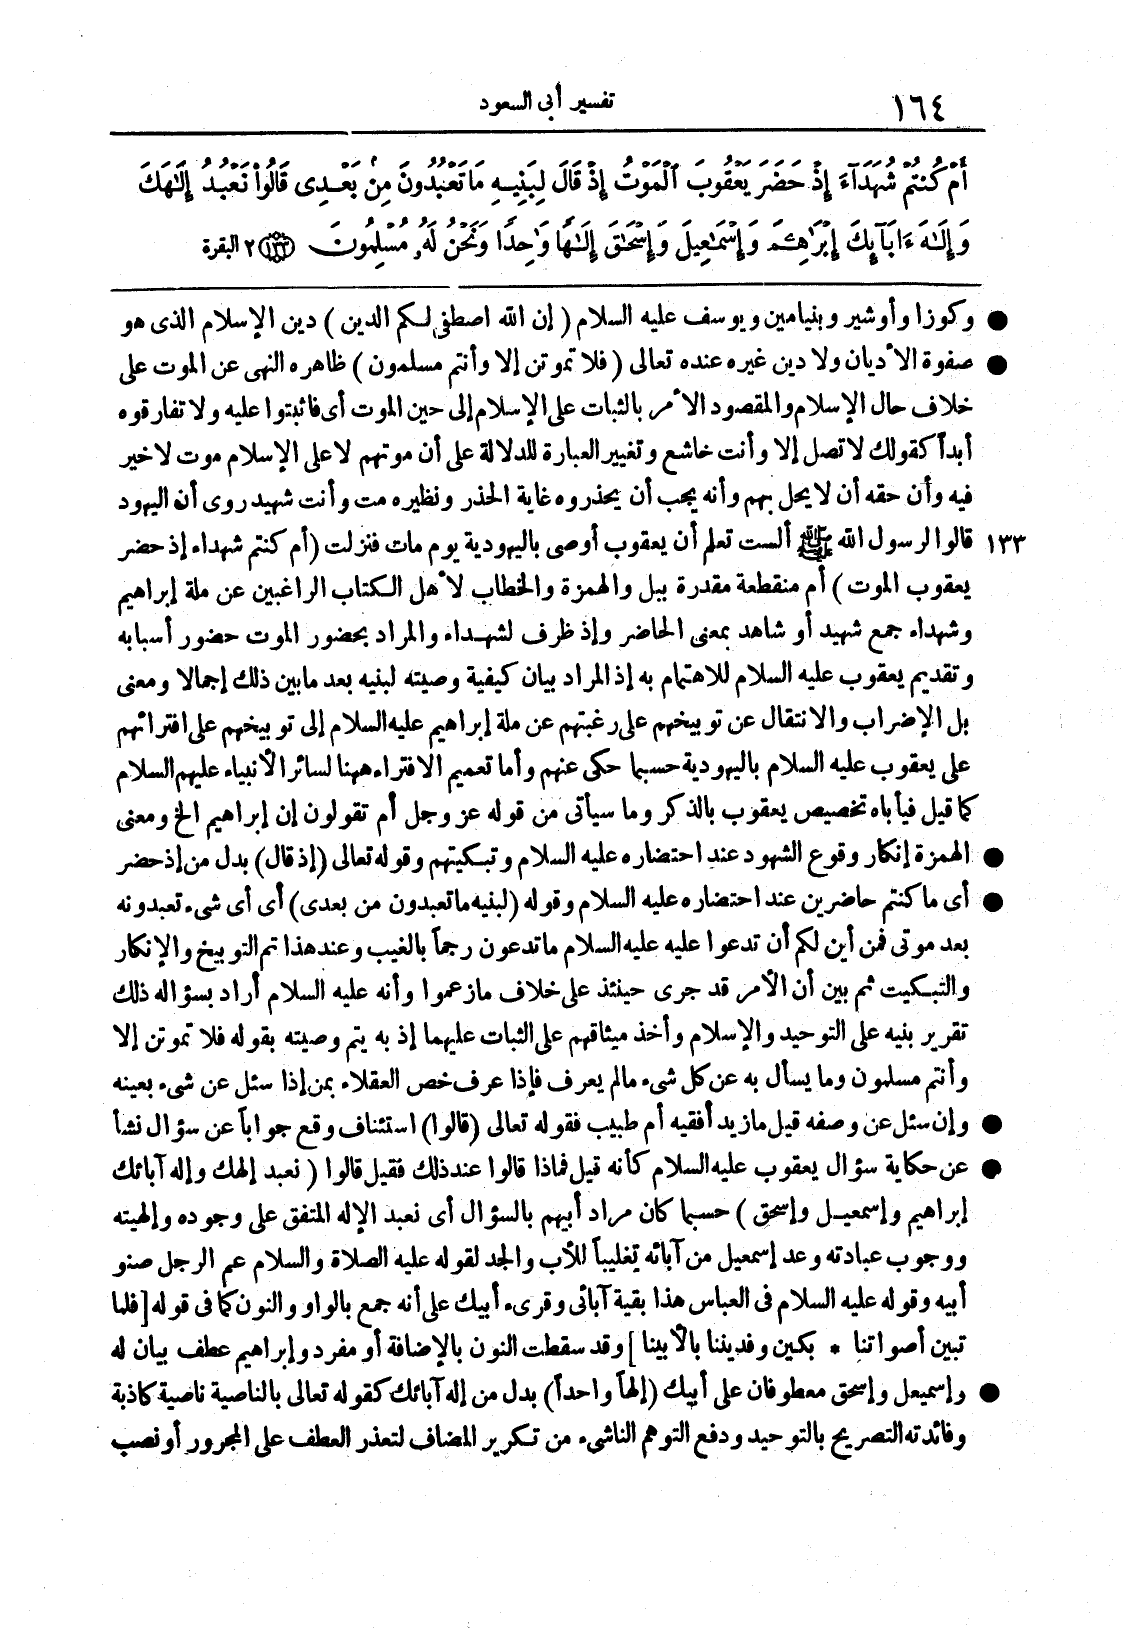 ١٦٤
تفسير أبى السعود
أَمْ كُنتُمْ شُهَدَآءَ إِذْ حَضَرَ يَعْقُوبَ ٱلْمَوْتُ إِذْ قَالَ لِبَنِيهِ مَا تَعْبُدُونَ مِنۢ بَعْدِى قَالُوا۟ نَعْبُدُ إِلَـٰهَكَ
وَإِلَـٰهَ ءَابَآئِكَ إِبْرَٰهِـۧمَ وَإِسْمَـٰعِيلَ وَإِسْحَـٰقَ إِلَـٰهًا وَٰحِدًا وَنَحْنُ لَهُۥ مُسْلِمُونَ ١٣٣ ٢ البقرة
● وكوزا وأوشير وبنيامين ويوسف عليه السلام ( إن الله اصطفى لكم الدين ) دين الإسلام الذى هو
● صفوة الأديان ولا دين غيره عنده تعالى ( فلا تموتن إلا وأنتم مسلمون ) ظاهره النهى عن الموت على
خلاف حال الإسلام والمقصود الأمر بالثبات على الإسلام إلى حين الموت أى فاثبتوا عليه ولا تفارقوه
أبداً كقولك لا تصل إلا وأنت خاشع وتغيير العبارة للدلالة على أن موتهم لا على الإسلام موت لاخير
فيه وأن حقه أن لا يحل بهم وأنه يجب أن يحذروه غاية الحذر ونظيره مت وأنت شهيد روى أن اليهود
١٣٣ قالوا لرسول الله ﷺ ألست تعلم أن يعقوب أوصى باليهودية يوم مات فنزلت (أم كنتم شهداء إذ حضر
يعقوب الموت ) أم منقطعة مقدرة ببل والهمزة والخطاب لأهل الكتاب الراغبين عن ملة إبراهيم
وشهداء جمع شهيد أو شاهد بمعنى الحاضر وإذ ظرف لشهداء والمراد بحضور الموت حضور أسبابه
وتقديم يعقوب عليه السلام للاهتمام به إذ المراد بيان كيفية وصيته لبنيه بعد ما بين ذلك إجمالا ومعنى
بل الإضراب والانتقال عن توبيخهم على رغبتهم عن ملة إبراهيم عليه السلام إلى توبيخهم على افترائهم
على يعقوب عليه السلام باليهودية حسبما حكى عنهم وأما تعميم الافتراء ههنا لسائر الأنبياء عليهم السلام
كما قيل فيأباه تخصيص يعقوب بالذكر وما سيأتى من قوله عز وجل أم تقولون إن إبراهيم الخ ومعنى
● الهمزة إنكار وقوع الشهود عند احتضاره عليه السلام وتبكيتهم وقوله تعالى (إذ قال) بدل من إذ حضر
● أى ما كنتم حاضرين عند احتضاره عليه السلام وقوله (لبنيه ما تعبدون من بعدى) أى أى شىء تعبدونه
بعد موتى فمن أين لكم أن تدعوا عليه عليه السلام ما تدعون رجماً بالغيب وعند هذا تم التوبيخ والإنكار
والتبكيت ثم بين أن الأمر قد جرى حينئذ على خلاف ما زعموا وأنه عليه السلام أراد بسؤاله ذلك
تقرير بنيه على التوحيد والإسلام وأخذ ميثاقهم على الثبات عليهما إذ به يتم وصيته بقوله فلا تموتن إلا
وأنتم مسلمون وما يسأل به عن كل شىء مالم يعرف فإذا عرف خص العقلاء بمن إذا سئل عن شىء بعينه
● وإن سئل عن وصفه قيل ما زيد أفقيه أم طبيب فقوله تعالى (قالوا) استئناف وقع جواباً عن سؤال نشأ
● عن حكاية سؤال يعقوب عليه السلام كأنه قيل فماذا قالوا عند ذلك فقيل قالوا ( نعبد إلهك وإله آبائك
إبراهيم وإسمعيل وإسحق ) حسبما كان مراد أبيهم بالسؤال أى نعبد الإله المتفق على وجوده وإلهيته
ووجوب عبادته وعد إسمعيل من آبائه تغليباً للأب والجد لقوله عليه الصلاة والسلام عم الرجل صنو
أبيه وقوله عليه السلام فى العباس هذا بقية آبائى وقرىء أبيك على أنه جمع بالواو والنون كما فى قوله [فلما
تبين أصواتنا * بكين وفديننا بالأبينا ] وقد سقطت النون بالإضافة أو مفرد وإبراهيم عطف بيان له
● وإسمعيل وإسحق معطوفان على أبيك (إلهاً واحداً) بدل من إله آبائك كقوله تعالى بالناصية ناصية كاذبة
وفائدته التصريح بالتوحيد ودفع التوهم الناشىء من تكرير المضاف لتعذر العطف على المجرور أو نصب